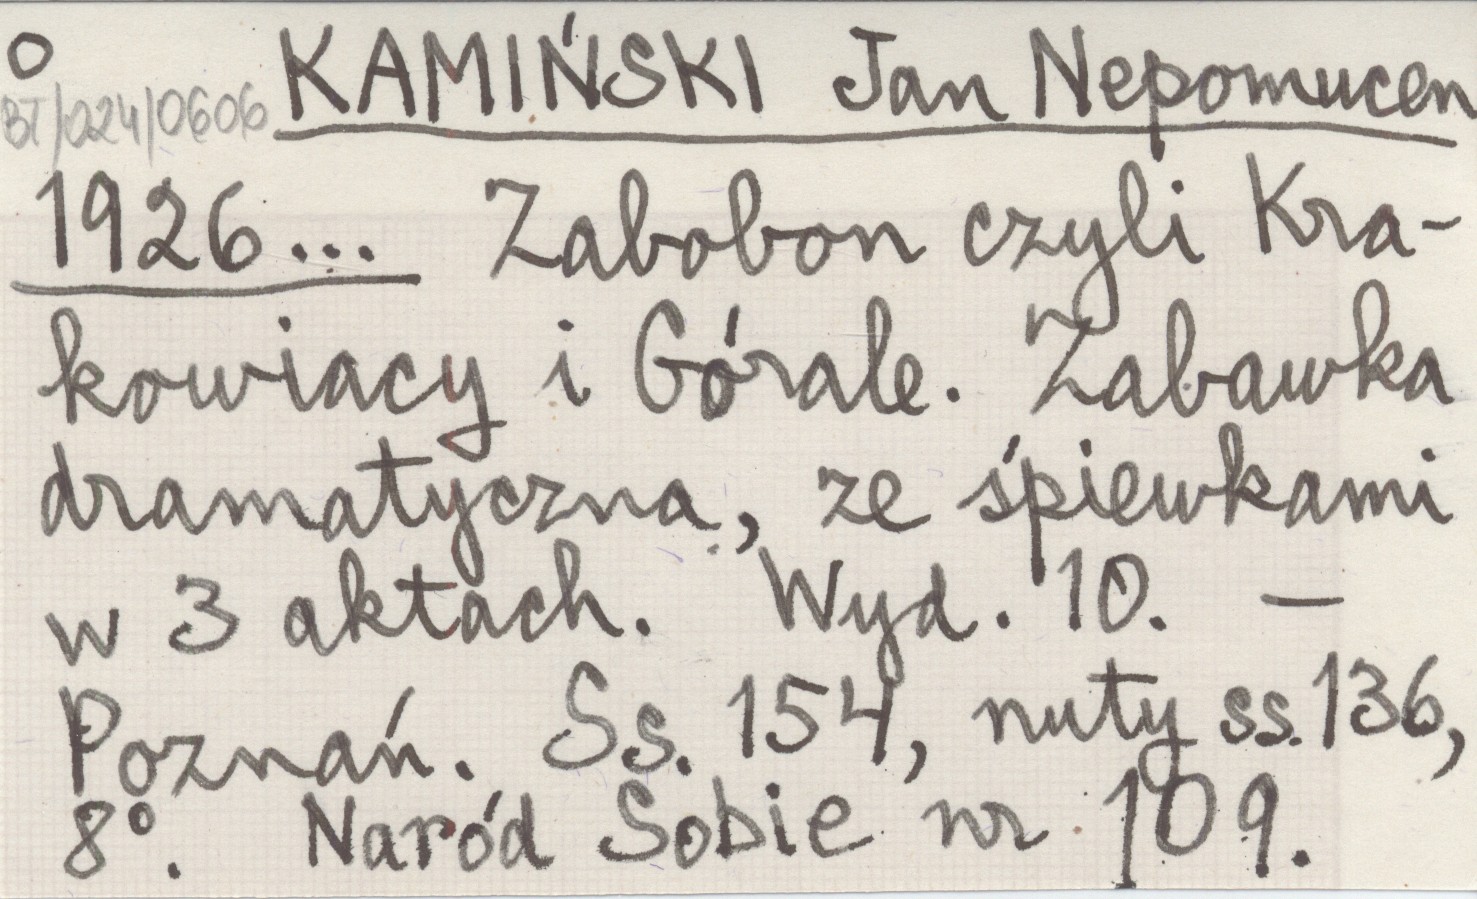 O KAMIŃSKI Jan Nepomucen
BT/024/0606
1926... Zabobon czyli Kra-
kowiacy i Górale. Zabawka
dramatyczna, ze śpiewkami
w 3 aktach. Wyd. 10. —
Poznań. Ss. 154, nuty ss. 136,
8°. Naród Sobie nr 109.